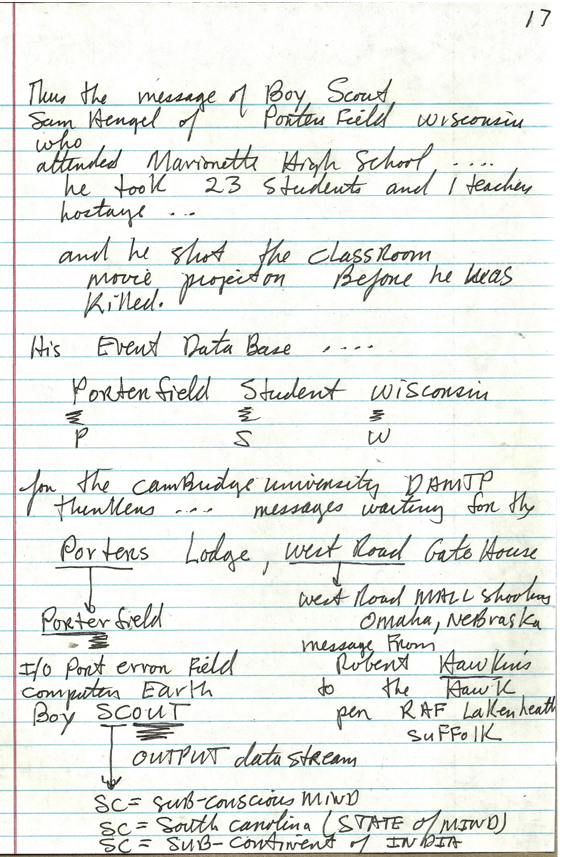 17
Thus the message of Boy Scout
Sam Hengel of Porterfield Wisconsin
who
attended Marionette High School ....
he took 23 students and 1 teacher
hostage ...
and he shot the classroom
movie projector Before he was
killed.
His Event Data Base ....
Porterfield Student Wisconsin
P S W
for the cambridge university DAMTP
thinkers .... messages waiting for the
Porters Lodge, West Road Gate House
Porterfield
West Road MALL shooting
Omaha, Nebraska
message From
Robert Hawkins
to the Hawk
pen RAF Lakenheath
SUFFOLK
I/O Port error Field
computer Earth
Boy SCOUT
OUTPUT data stream
SC = SUB-conscious MIND
SC = South carolina (STATE of MIND)
SC = SUB-Continent of INDIA